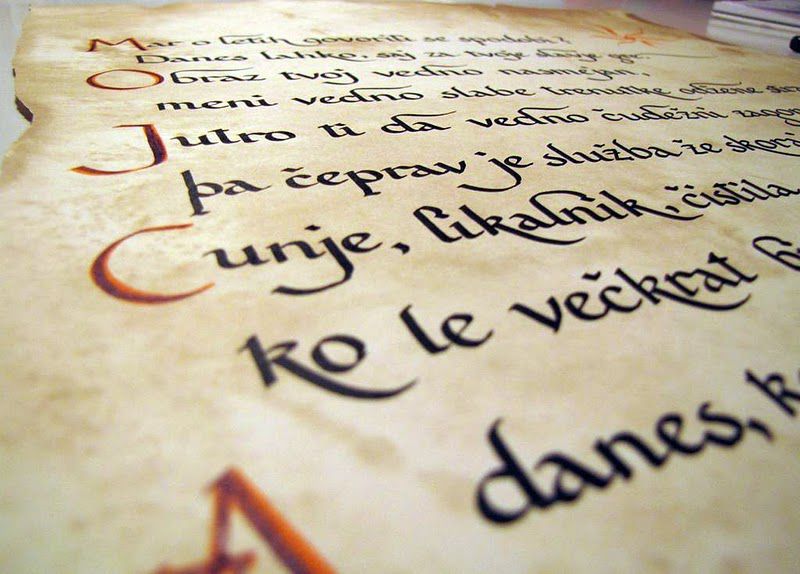 Mar o letih govoriti se spodobi?
Danes lahko, saj za tvoje
Obraz tvoj vedno nasmejan,
meni vedno slabe trenutke odžene
Jutro ti da vedno čudežni
pa čeprav je služba že skoraj
Cunje, likalnik, čistila
ko le večkrat
A danes,